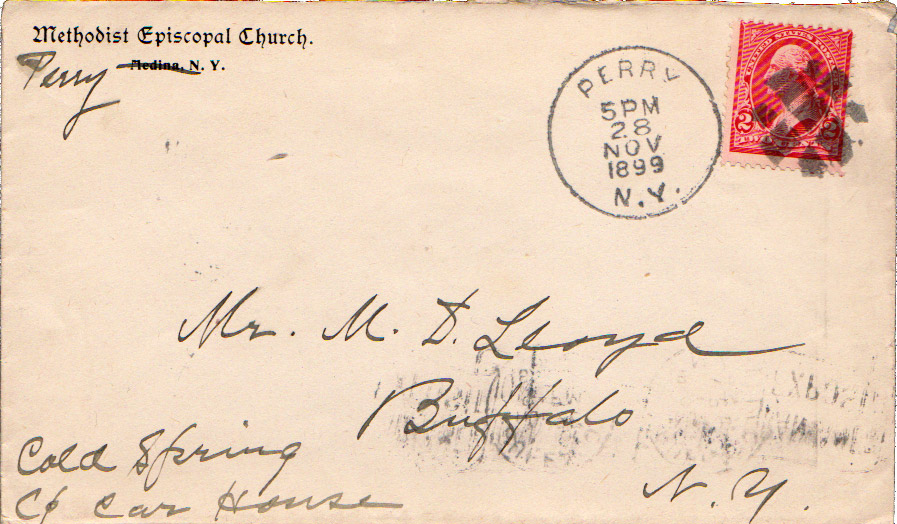 Methodist Episcopal Church.
Perry Medina, N. Y.
PERRY
5PM
28
NOV
1899
N.Y.
UNITED STATES POSTAGE
2 2
Mr. M. D. Lloyd
Buffalo
N. Y.
Cold Spring
Car House